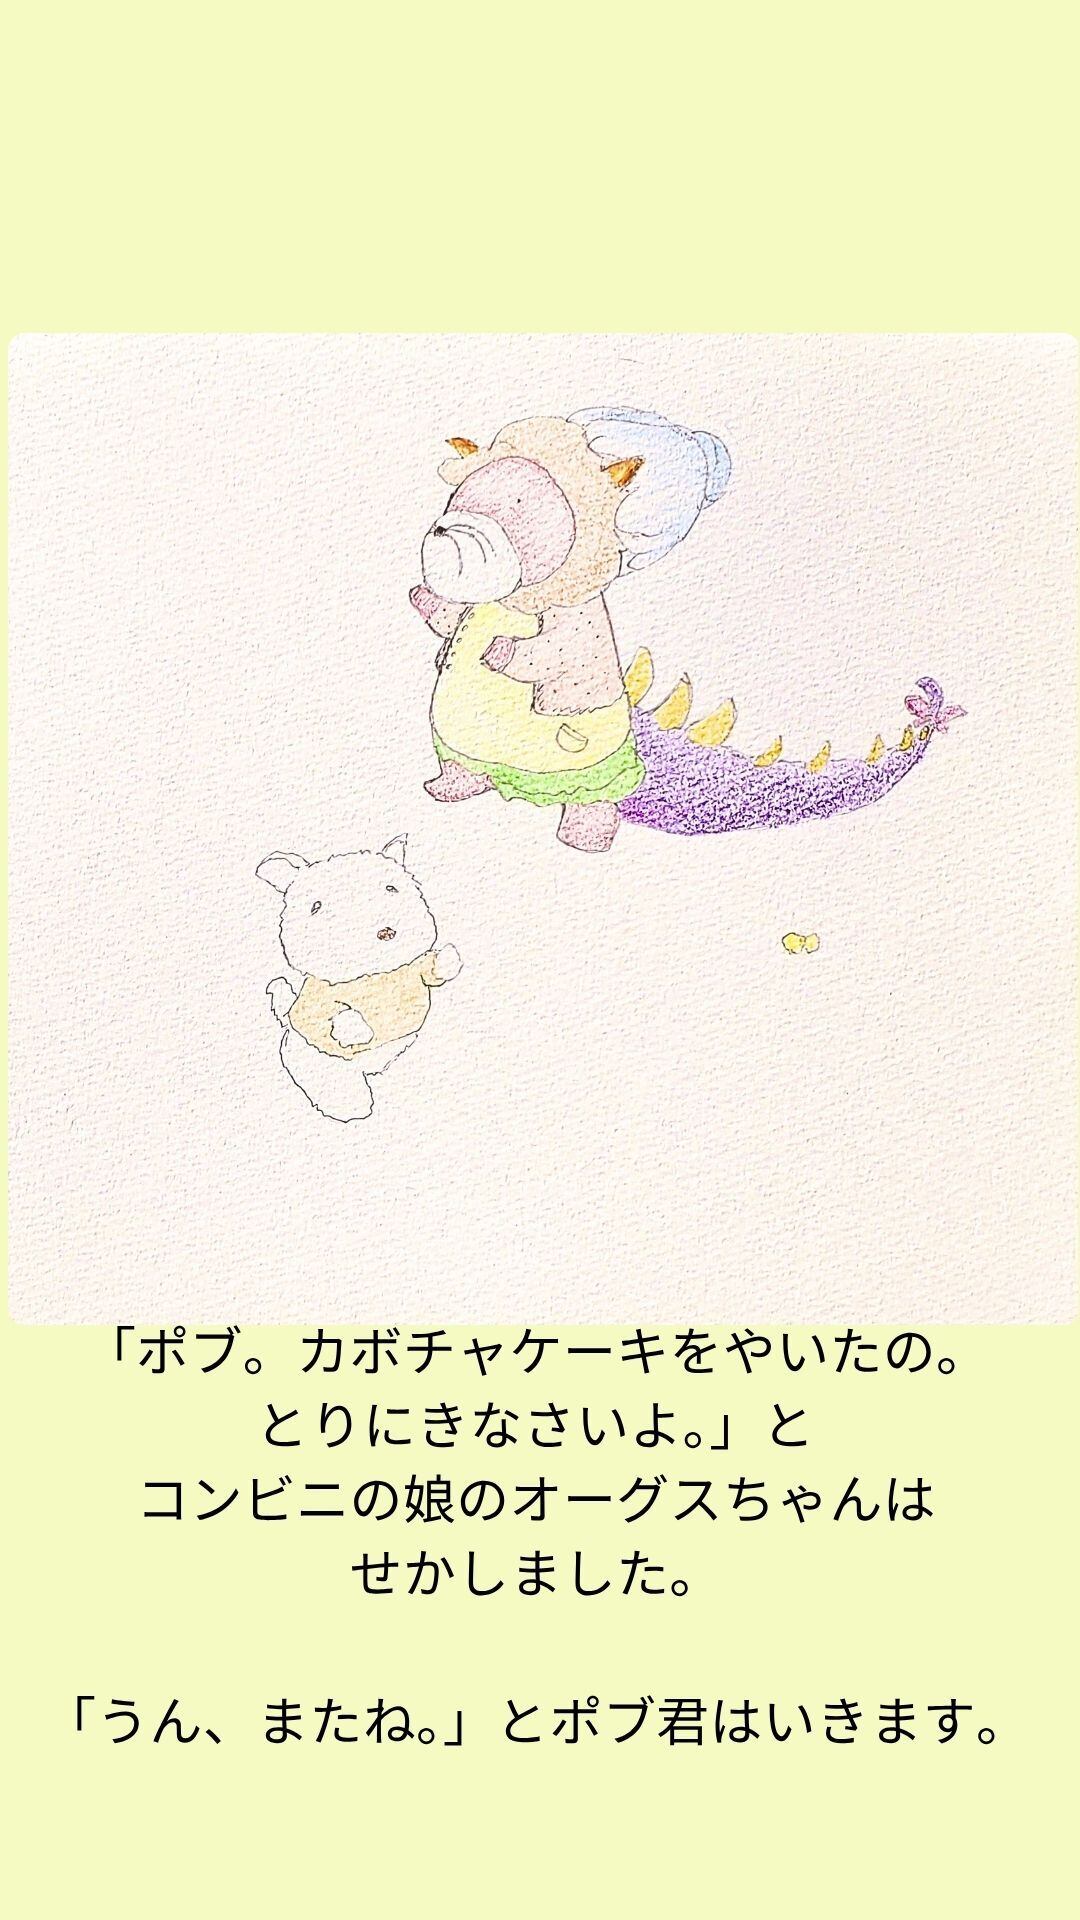 「ポブ。カボチャケーキをやいたの。
とりにきなさいよ。」と
コンビニの娘のオーグスちゃんは
せかしました。
「うん、またね。」とポブ君はいきます。